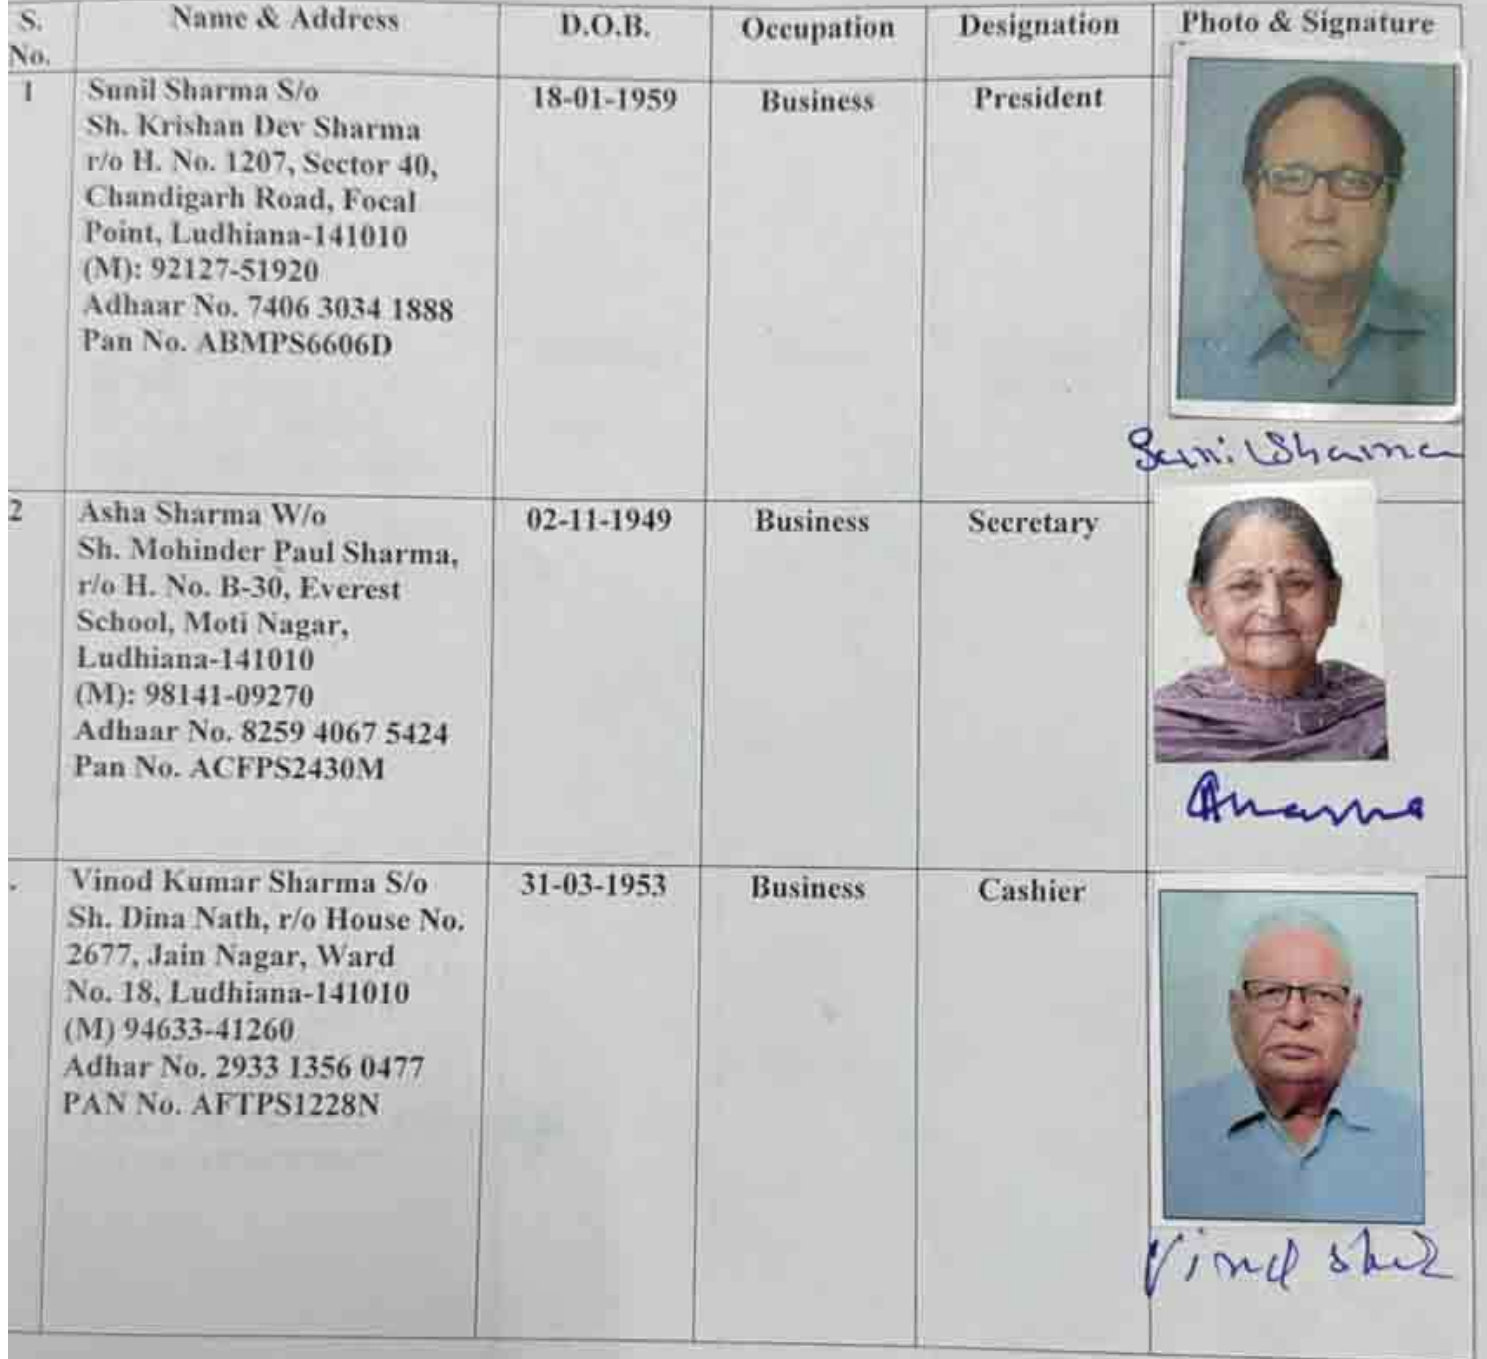 S. No.
Name & Address
D.O.B.
Occupation
Designation
Photo & Signature
1
Sunil Sharma S/o
Sh. Krishan Dev Sharma
r/o H. No. 1207, Sector 40,
Chandigarh Road, Focal
Point, Ludhiana-141010
(M): 92127-51920
Adhaar No. 7406 3034 1888
Pan No. ABMPS6606D
18-01-1959
Business
President
Sunil Sharma
2
Asha Sharma W/o
Sh. Mohinder Paul Sharma,
r/o H. No. B-30, Everest
School, Moti Nagar,
Ludhiana-141010
(M): 98141-09270
Adhaar No. 8259 4067 5424
Pan No. ACFPS2430M
02-11-1949
Business
Secretary
Vinod Kumar Sharma S/o
Sh. Dina Nath, r/o House No.
2677, Jain Nagar, Ward
No. 18, Ludhiana-141010
(M) 94633-41260
Adhar No. 2933 1356 0477
PAN No. AFTPS1228N
31-03-1953
Business
Cashier
Vinod